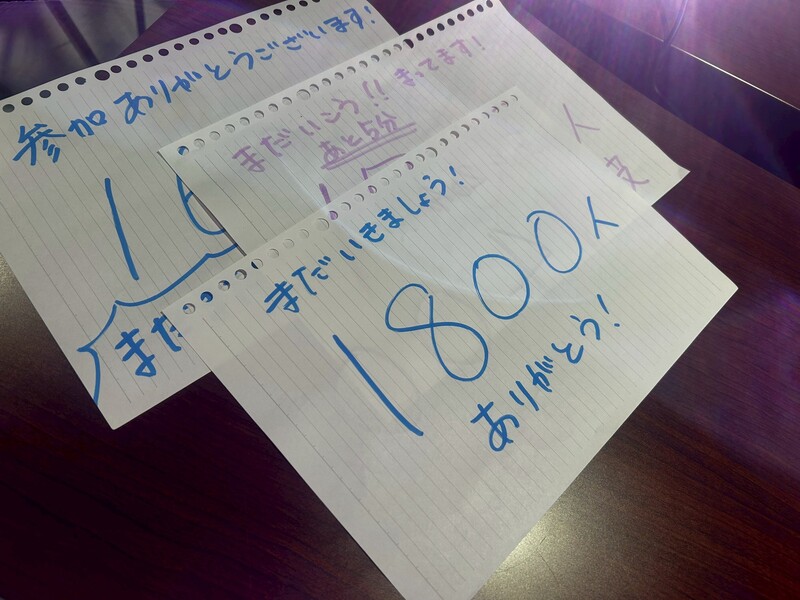 参加ありがとうございます!
1
まだ
まだいこう!! まってます!
あと5分
人
まだいきましょう!
1800人
ありがとう!